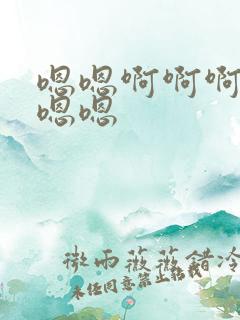 嗯嗯啊啊啊
嗯嗯
微雨薇薇错冷
未经同意禁止转载